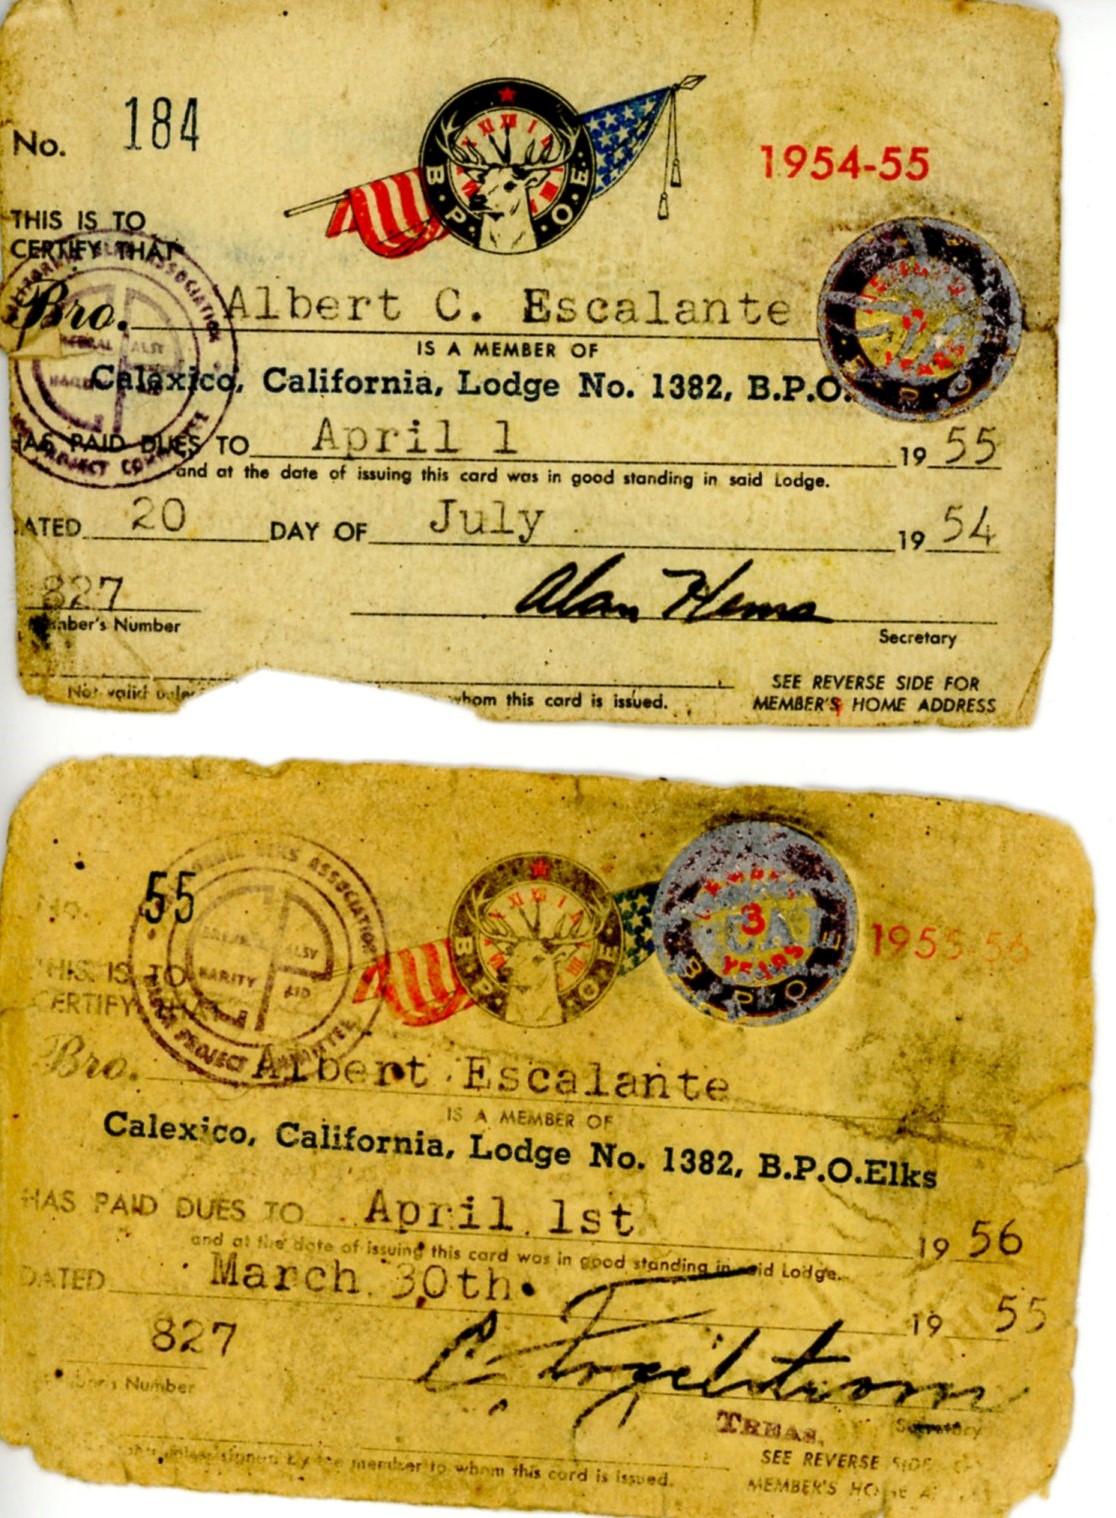 No. 184
B.P.O.E.
1954-55
THIS IS TO
CERTIFY THAT
Bro. Albert C. Escalante
IS A MEMBER OF
Calexico, California, Lodge No. 1382, B.P.O.
HAS PAID DUES TO April 1 19 55
and at the date of issuing this card was in good standing in said Lodge.
DATED 20 DAY OF July 19 54
827
Member's Number
Alan Hems
Secretary
Not valid whom this card is issued.
SEE REVERSE SIDE FOR
MEMBER'S HOME ADDRESS
ASSOCIATION
PROJECT COMMITTEE
YEARS
No. 55
ASSOCIATION
PALSY
AID
PROJECT COMMITTEE
B.P.O.E.
3
YEARS
B P O E
1955-56
THIS IS TO
CERTIFY THAT
Bro. Albert Escalante
IS A MEMBER OF
Calexico, California, Lodge No. 1382, B.P.O.Elks
HAS PAID DUES TO April 1st 19 56
and at the date of issuing this card was in good standing in said Lodge.
DATED March 30th. 19 55
827
Number
TREAS.
Secretary
unless signed by the member to whom this card is issued.
SEE REVERSE SIDE
MEMBER'S HOME